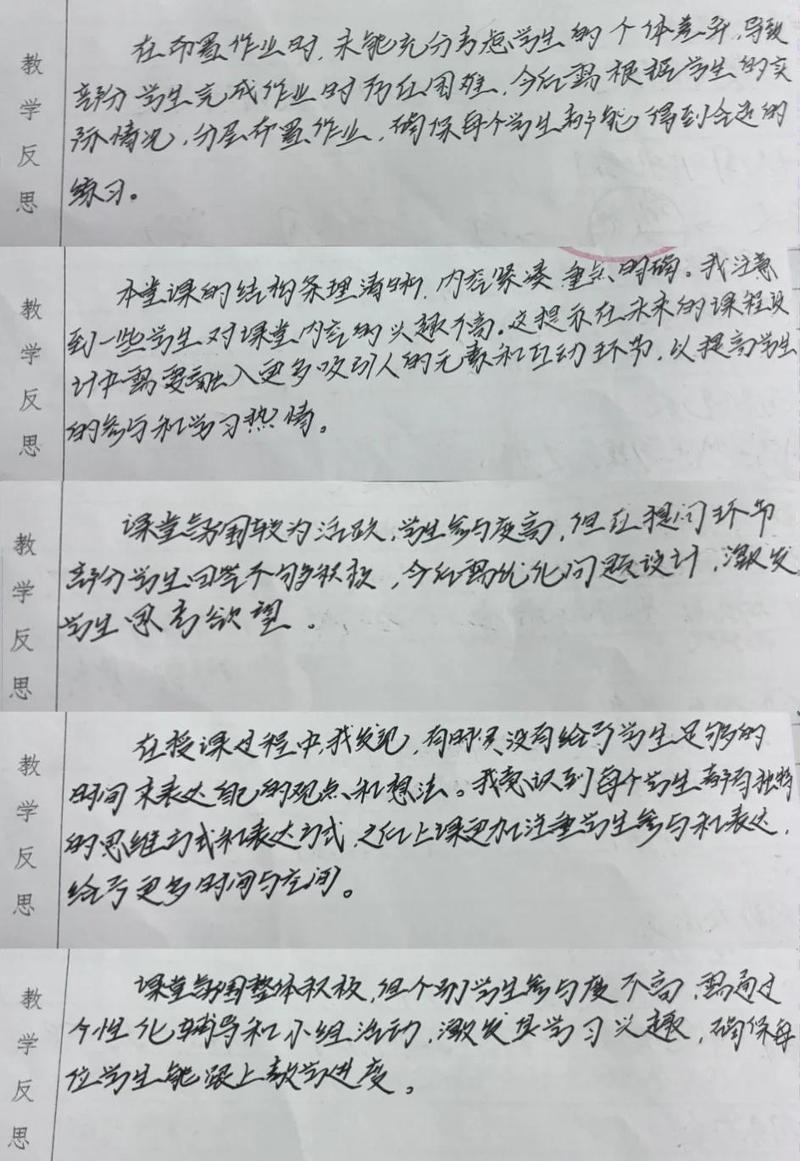 教学反思
在布置作业时,未能充分考虑学生的个体差异,导致
部分学生完成作业时存在困难,今后需根据学生的实
际情况,分层布置作业,确保每个学生都能得到合适的
练习。
教学反思
本堂课的结构条理清晰,内容紧凑,重点明确。我注意
到一些学生对课堂内容的兴趣不高。这提示在未来的课程设
计中需要融入更多吸引人的元素和互动环节,以提高学生
的参与和学习热情。
教学反思
课堂氛围较为活跃,学生参与度高,但在提问环节
部分学生回答不够积极,今后需优化问题设计,激发
学生思考欲望。
教学反思
在授课过程中,我发现,有时候没有给予学生足够的
时间来表达自己的观点和想法。我意识到每个学生都有独特
的思维方式和表达方式,之后上课更加注重学生参与和表达,
给予更多时间与空间。
教学反思
课堂氛围整体积极,但个别学生参与度不高,需通过
个性化辅导和小组活动,激发其学习兴趣,确保每
位学生能跟上教学进度。